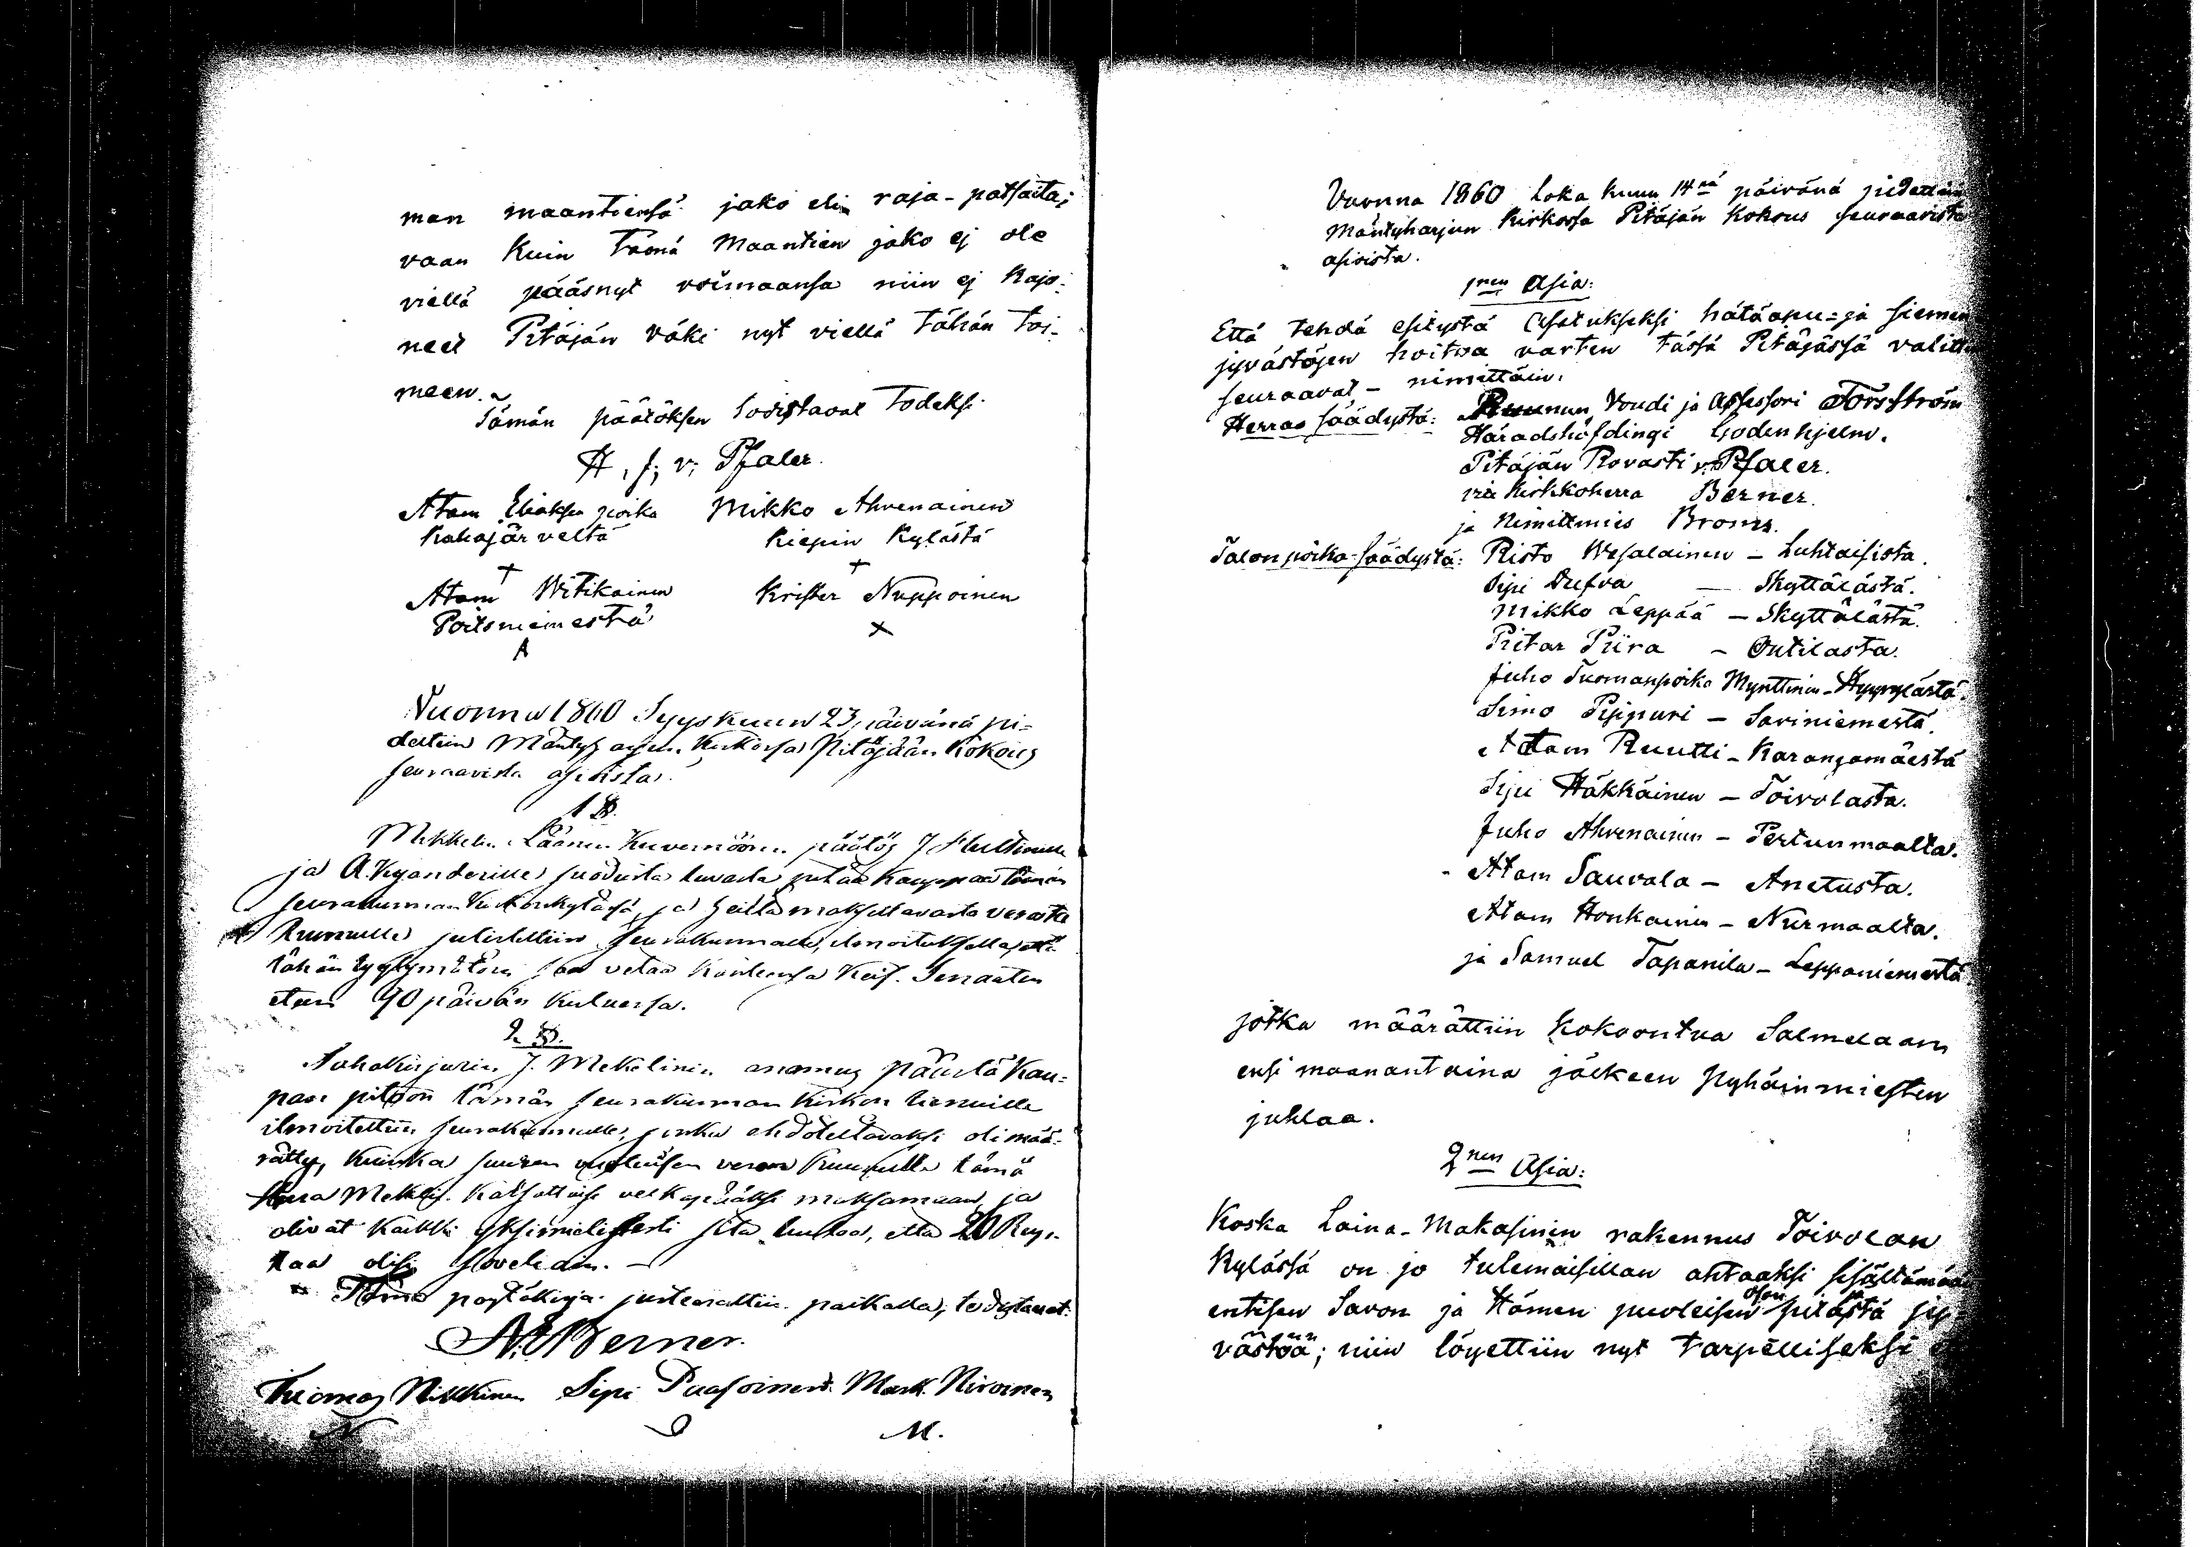 man maantiensä jako eli raja-patsaita;
vaan kuin tämä Maantien jako ej ole
viellä päässyt voimaansa niin ej kajo-
neet Pitäjän väki nyt viellä tähän toi-
meen.
Tämän päätöksen todistavat todeksi
H. J. v. Pfaler.
Atam Eliaksen poika Mikko Ahvenainen
Kahajärveltä Kiepin Kylästä
+ +
Atam Witikainen Krister Nuppoinen
Poitsniemestä x
A
Vuonna 1860 Syyskuun 23 päivänä pi-
dettiin Mäntyharjun Kirkossa Pitäjään Kokous
seuraavista asioista.
1 §.
Mikkelin Läänin Kuvernöörin päätös J
ja A. Kyanderille suodusta luvasta pitää Kauppaa tämän
seurakunnan Kirkonkylässä, ja heiltä maksettavasta verosta
Kruunulle julistettiin Seurakunnalle, ilmoituksella, että
tähän tyytymätön saa vetää Kanteensa Keis. Senaatin
eteen 90 päivän kuluessa.
2 §.
J. Mekelinin anomus päästä Kau-
pan pitoon tämän seurakunnan Kirkon tienoille
ilmoitettiin seurakunnalle, jonka ehdoteltavaksi oli mää-
rätty, kuinka suuren vuotuisen veron Kruunulle tämä
Herra Mekelin katsottaisi velkapääksi maksamaan, ja
olivat kaikki yksimielisesti sitä luuloa, että 20 Rup-
laa olisi sovelias. —
Tämä pöytäkirja justeerattiin paikalla, todistavat:
A. Berner.
Tuomas Nikkinen Sipi Paasoinen Mark. Hirvinen
N M.
Vuonna 1860 Loka kuun 14nä päivänä pidettiin
Mäntyharjun Kirkossa Pitäjän Kokous seuraavista
asioista.
1nen Asia:
Että tehdä esitystä Asetukseksi hätäapu- ja siemen
jyvästöjen hoitoa varten tässä Pitäjässä valittiin
seuraavat – nimittäin:
Herras säädystä: Ruunun Voudi ja Assessori Forsström
Häradshöfdingi Godenhjelm.
Pitäjän Rovasti v. Pfaler.
via Kirkkoherra Berner.
ja Nimittmies Broms.
Talonpoika-säädystä: Risto Wesalainen – Luhtaisista.
Sipi Dufva — Skyttälästä.
Mikko Leppää – Skyttälästä.
Pietar Piira – Outilasta.
Juho Tuomanpoika Mynttinen – Hyyrylästä.
Simo Pispuri – Sariniemestä.
Atam Ruutti – Karangamäestä
Sipi Häkkäinen – Toivolasta.
Juho Ahvenainen – Pertunmaalta.
Atam Sauvala – Anetusta.
Atam Honkainen – Nurmaalta.
ja Samuel Tapanila – Leppaniemestä
jotka määrättiin kokoontua Salmelaan
ensi maanantaina jälkeen Pyhäinmiesten
juhlaa.
2nen Asia:
Koska Laina-Makasinin rakennus Toivolan
Kylässä on jo tulemaisillan ahtaaksi sisältämään
entisen Savon ja Hämen puoleisen osan pitäjästä jy-
västöä; niin löyettiin nyt tarpelliseksi